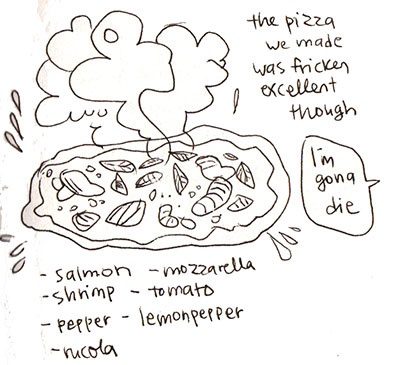 the pizza
we made
was fricken
excellent
though
I'm
gona
die
- salmon - mozzarella
- shrimp - tomato
- pepper - lemonpepper
- rucola